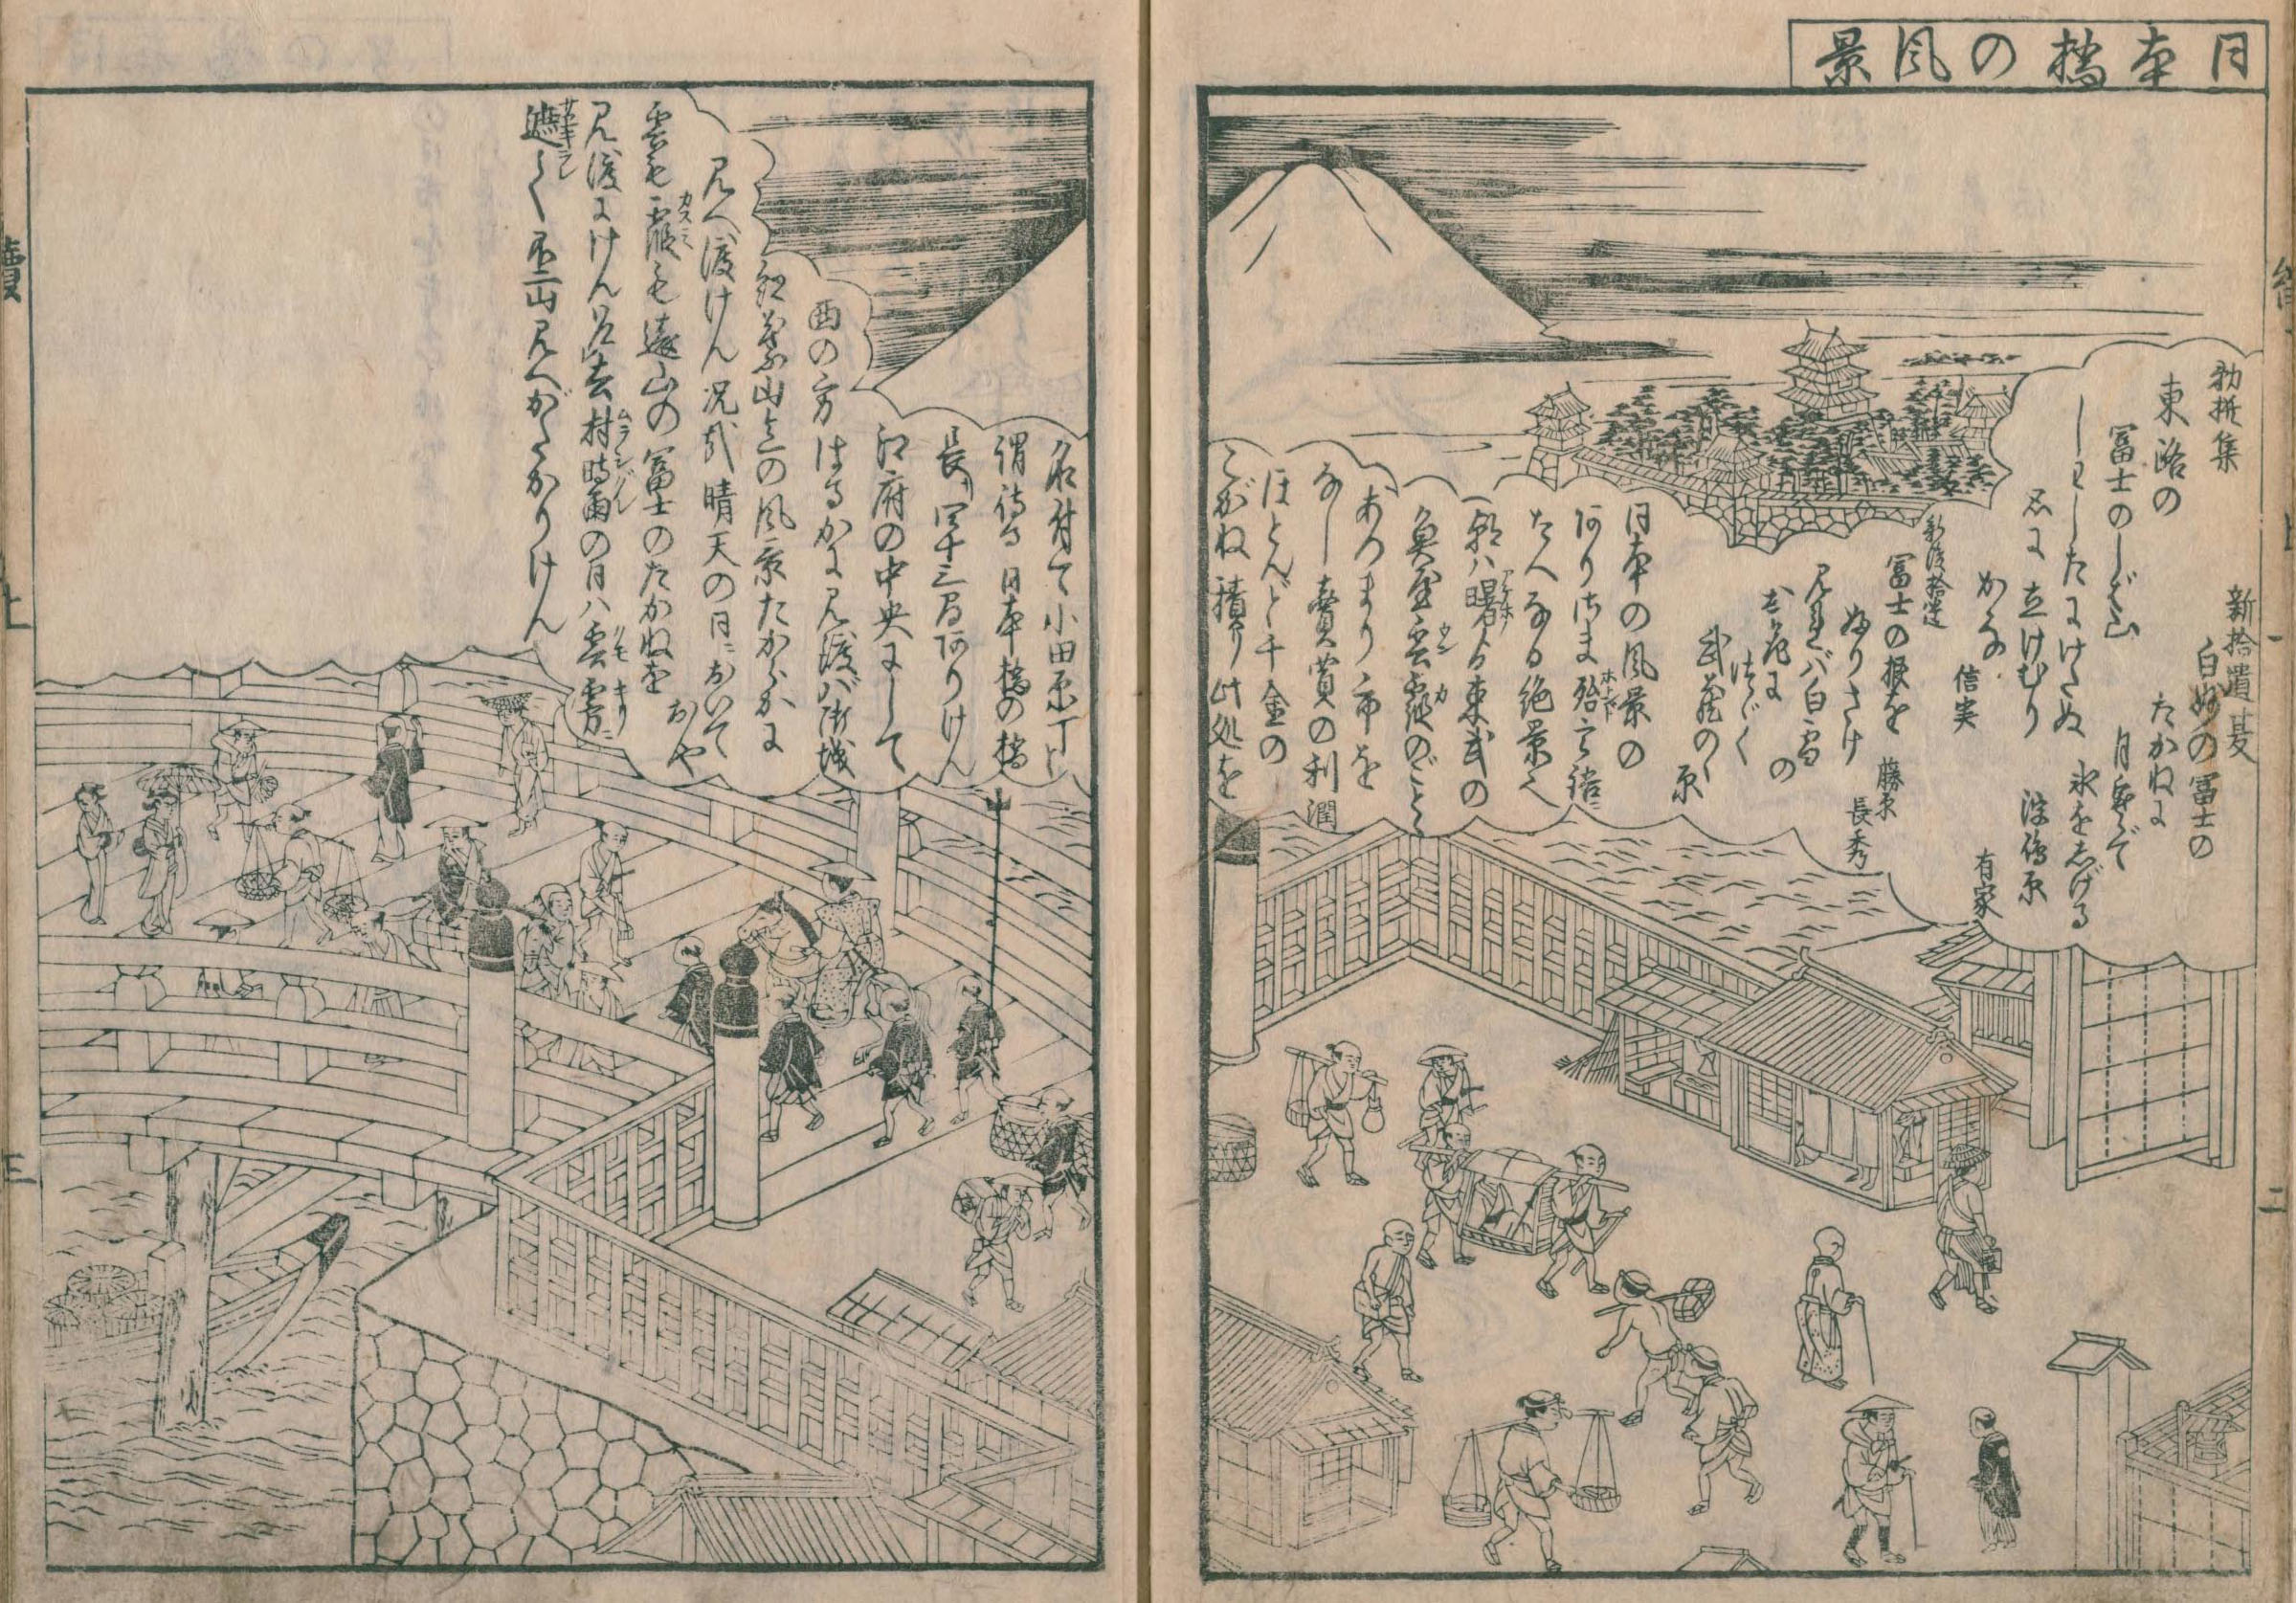 日本橋の風景
新拾遺 基
白妙の冨士の
たかねに
月気て
氷をしける
浮嶋原
勅撰集
東路の
冨士のしば山
しはしたにけたぬ
思に立けむり
かな
信実
有家
新後拾遺
冨士の根を
ふりさけ
見れバ白雪
の
尾花に
つゞく
武蔵の
原
藤原
長秀
日本の風景の
ありさま殆言語ニ
たへなる絶景之
朝ハ曙より東武の
魚屋雲霞のごとく
あつまり市を
なし売買の利潤
ほとんど千金の
こがね積り此処を
名付て小田原丁と
謂侍る日本橋の橋
長サ四十三間ありけん
江府の中央にして
西の方はるかに見渡バ御城
紅葉山辺の風景たからかに
見へ渡けん况哉晴天の日ニおいて
おや
雲も霞も遠山の冨士のたかねを
見渡にけん若去村時雨の日ハ雲霧ニ
遮く不二山見へがたかりけん
續
上
三
二